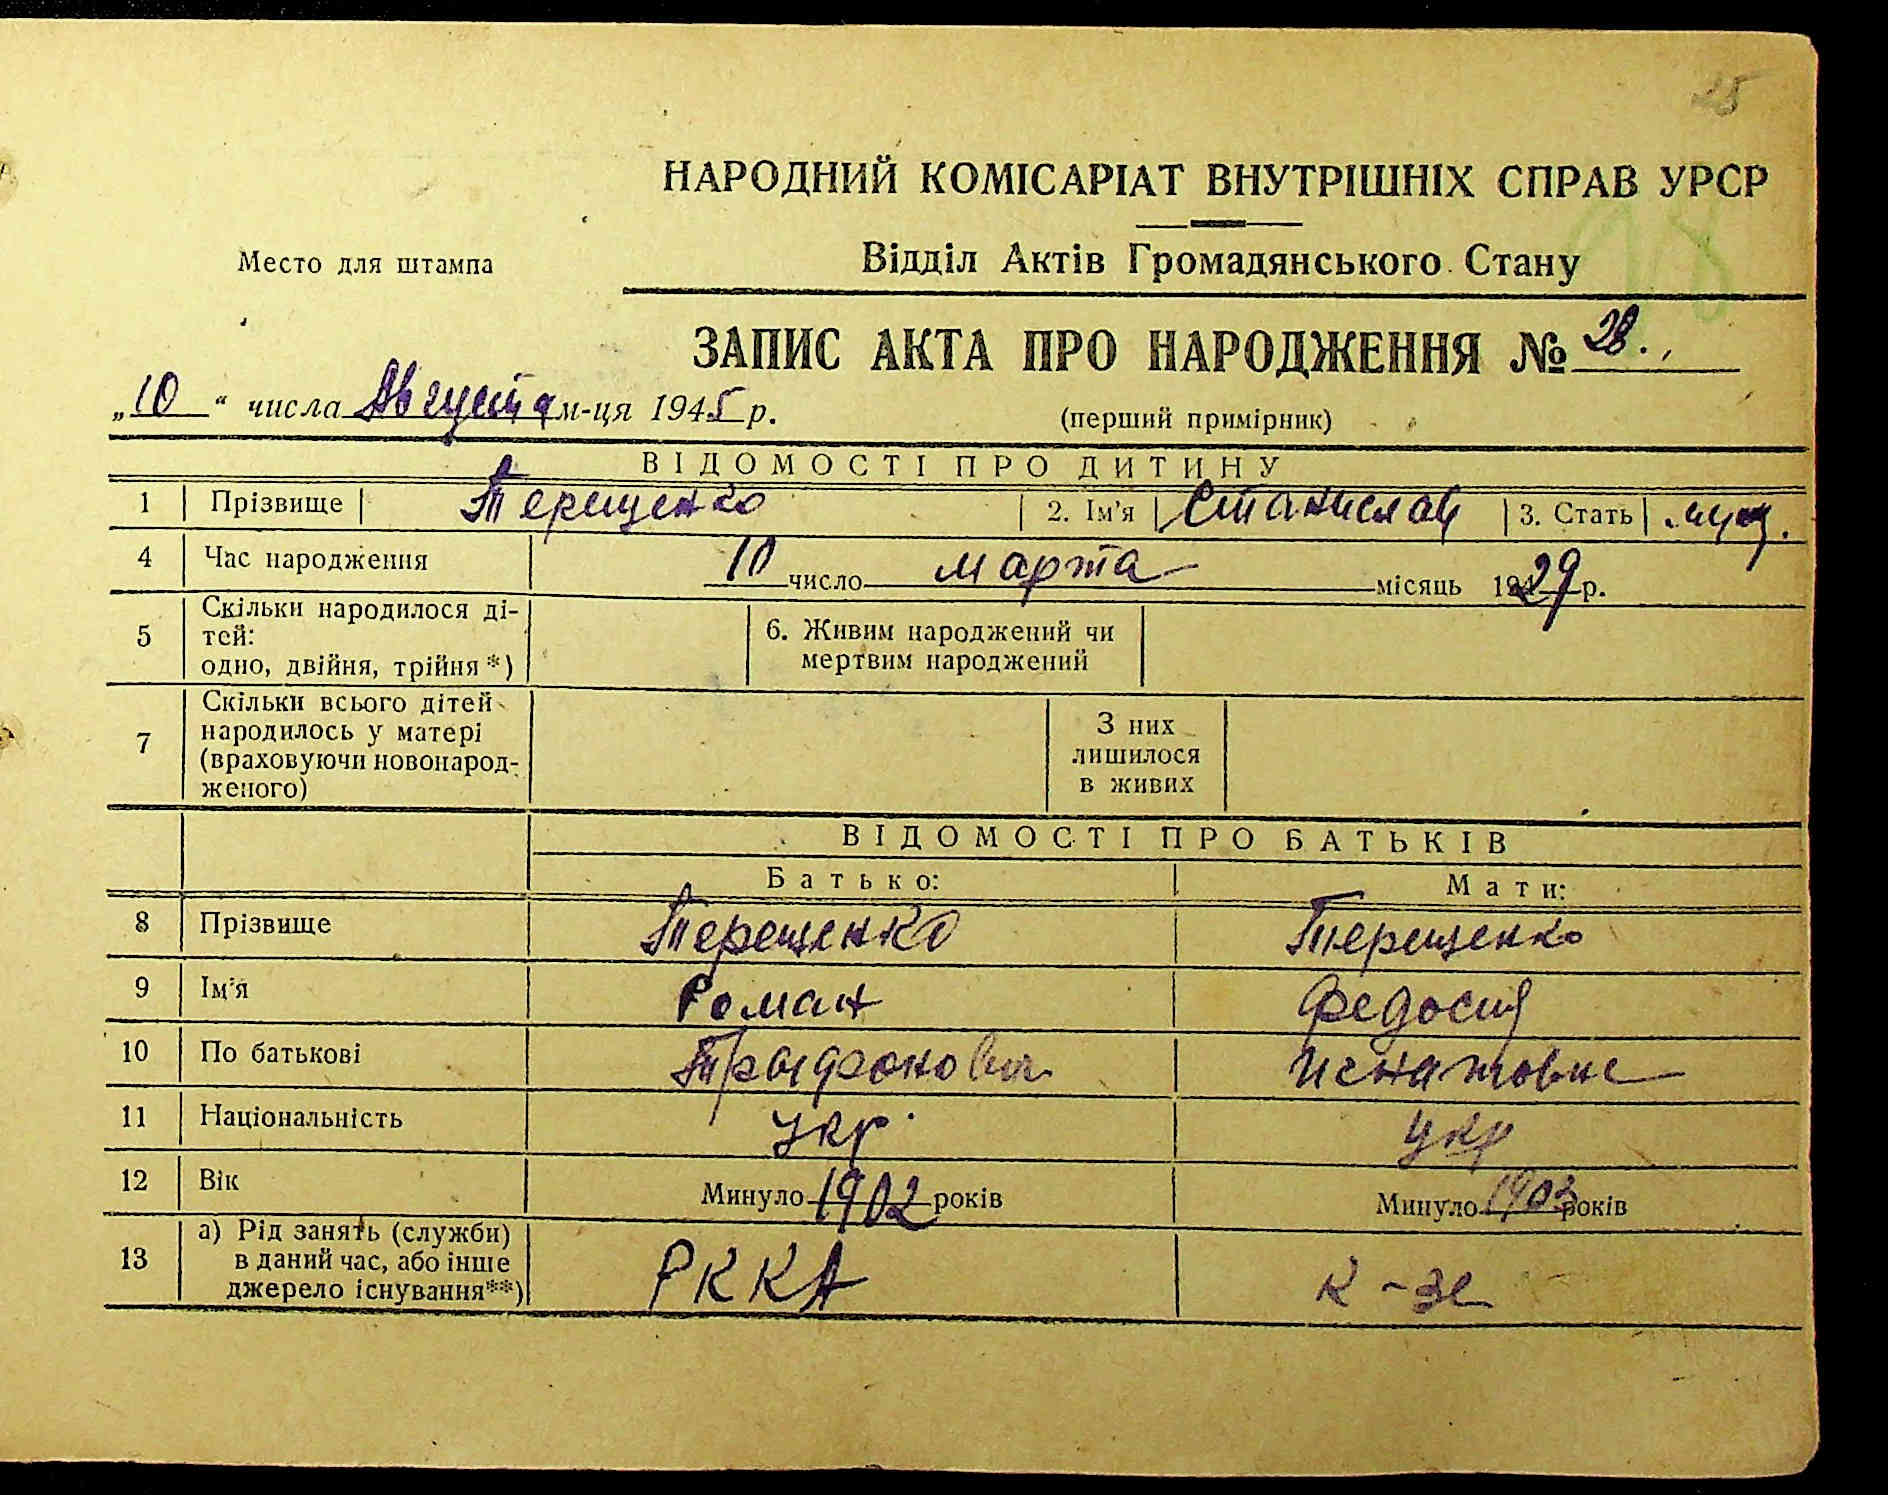 25
НАРОДНИЙ КОМІСАРІАТ ВНУТРІШНІХ СПРАВ УРСР
Место для штампа
Відділ Актів Громадянського Стану
28
ЗАПИС АКТА ПРО НАРОДЖЕННЯ № 28.
„10“ числа Августа м-ця 1945 р.
(перший примірник)
ВІДОМОСТІ ПРО ДИТИНУ
1 Прізвище Терещенко 2. Ім'я Станислав 3. Стать муж.
4 Час народження 10 число марта місяць 1929 р.
5 Скільки народилося ді-
тей:
одно, двійня, трійня *)
6. Живим народжений чи
мертвим народжений
7 Скільки всього дітей
народилось у матері
(враховуючи новонарод-
женого)
З них
лишилося
в живих
ВІДОМОСТІ ПРО БАТЬКІВ
Батько: Мати:
8 Прізвище Терещенко Терещенко
9 Ім'я Роман Федосия
10 По батькові
11 Національність укр. укр
12 Вік Минуло 1902 років Минуло 1903 років
13 а) Рід занять (служби)
в даний час, або інше
джерело існування**)
РККА к-зе